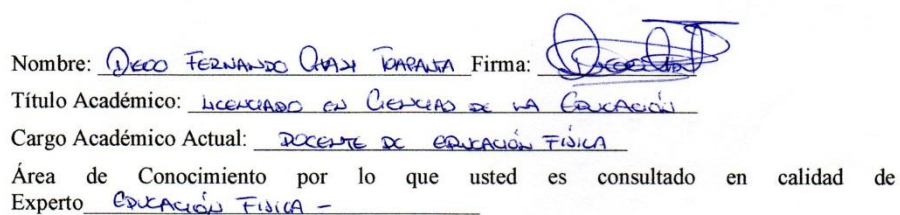 Nombre: Diego Fernando Chan Toapanta Firma:
Título Académico: Licenciado en Ciencias de la Educación
Cargo Académico Actual: Docente de Educación Física
Área de Conocimiento por lo que usted es consultado en calidad de
Experto Educación Física -